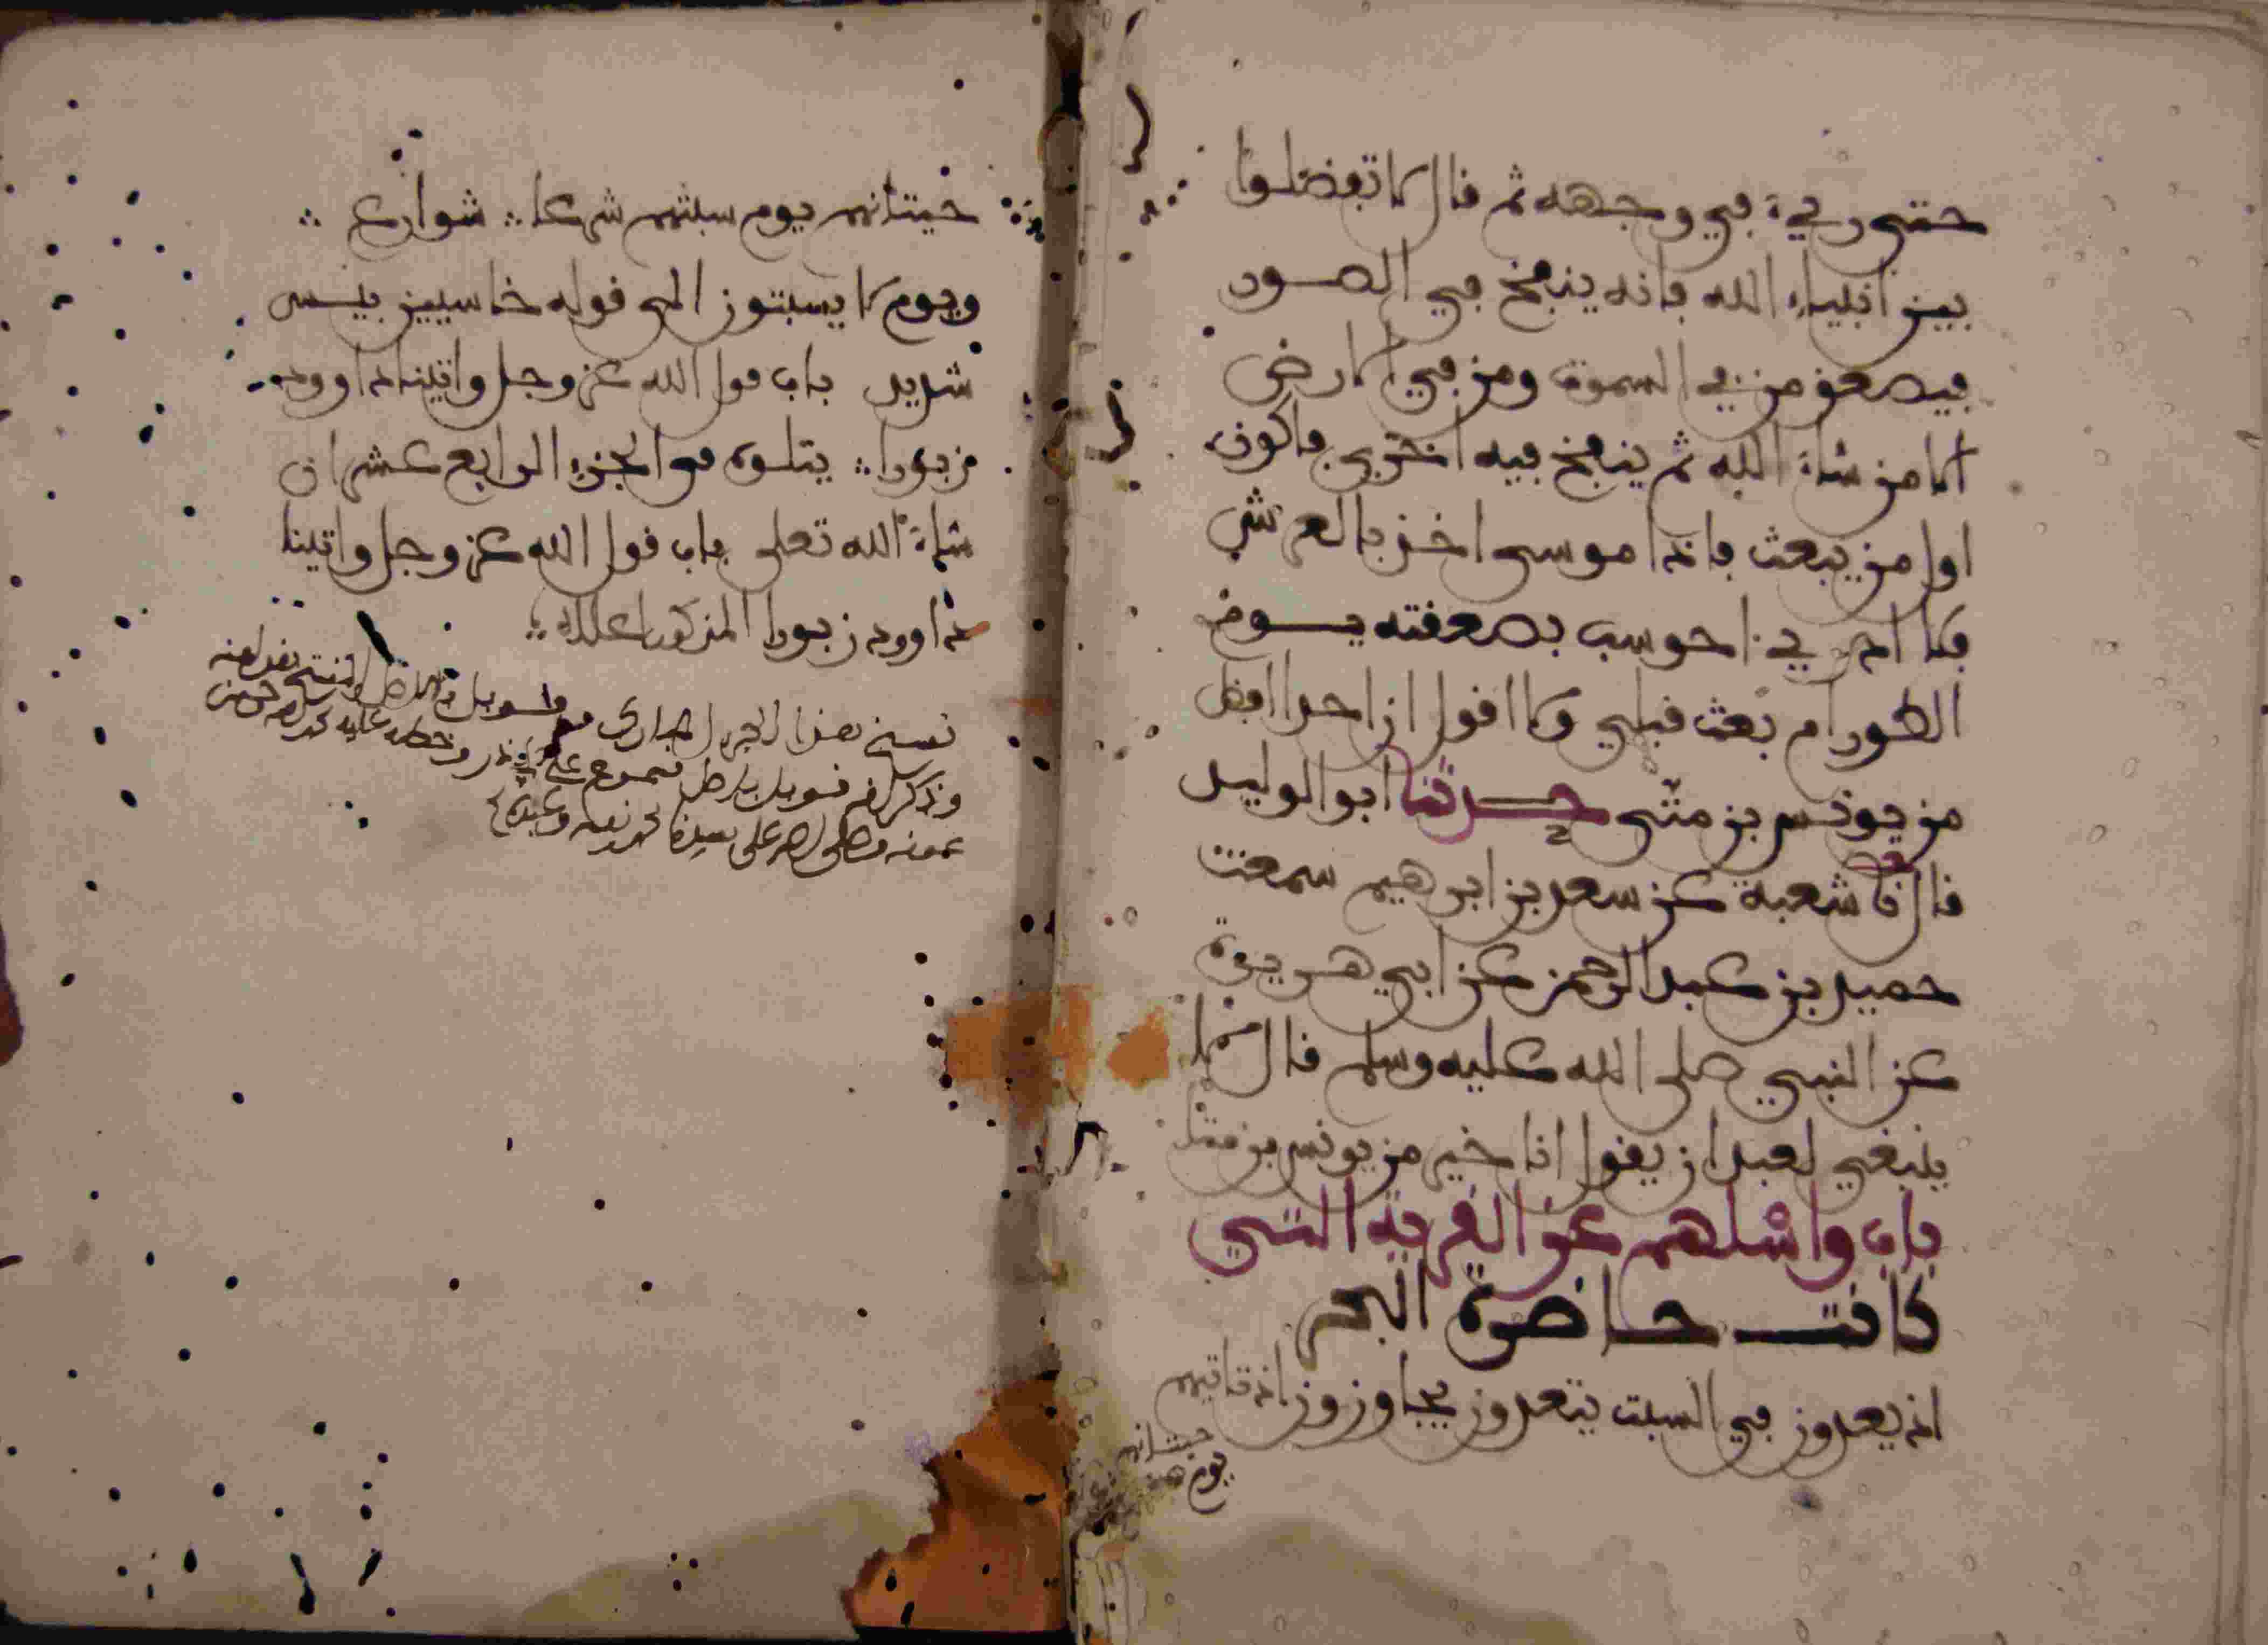 حتى رءي في وجهه ثم قال لا تفضلوا
بين انبياء الله فانه ينفخ في الصور
فيصعق من في السموت ومن في الارض
الا من شاء الله ثم ينفخ فيه اخرى فاكون
اول من يبعث فاذا موسى اخذ بالعرش
فلا ادري احوسب بصعقته يوم
الطور ام بعث قبلي ولا اقول ان احدا افضل
من يونس بن متى حدثنا ابو الوليد
قال نا شعبة عن سعد بن ابرهيم سمعت
حميد بن عبد الرحمن عن ابي هريرة
عن النبي صلى الله عليه وسلم قال لا
ينبغي لعبد ان يقول انا خير من يونس بن متى
باب واسلهم عن القرية التي
كانت حاضرة البحر
اذ يعدون في السبت يتعدون يجاوزون اذ تاتيهم
حيتانهم
يوم
حيتانهم يوم سبتهم شرعا ؞ شوارع ؞
ويوم لا يسبتون الى قوله خاسيين بيس
شديد باب قول الله عز وجل واتينا داوود
زبورا ؞ يتلوه في الجزء الرابع عشر ان
شاء الله تعلى باب قول الله عز وجل واتينا
داوود زبورا
نسخ هذا
وذكر انه قوبل باصل مسموع على
على سيدنا محمد نبيه وعبده